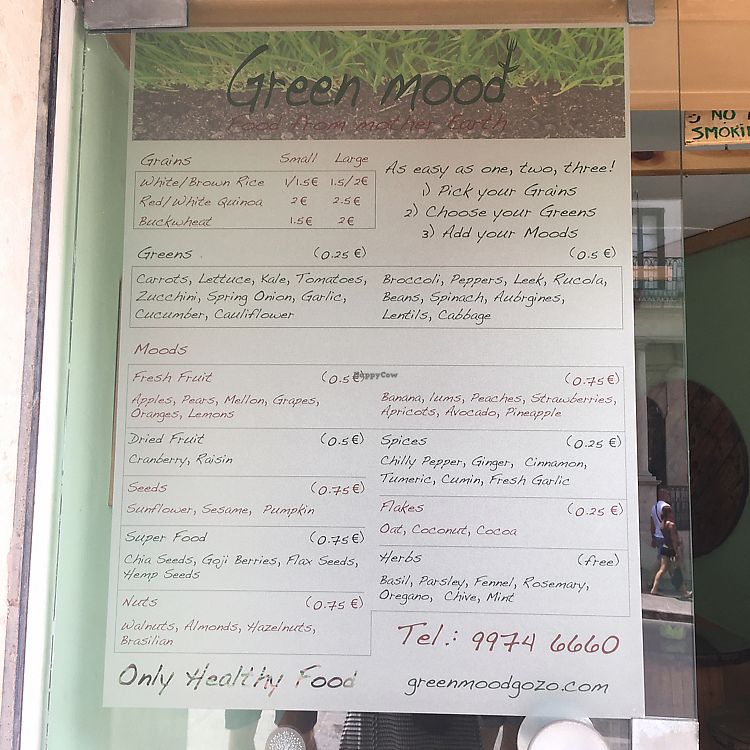 Green mood
Food from mother Earth
NO
SMOKI
Grains Small Large
White/Brown Rice 1/1.5€ 1.5/2€
Red/White Quinoa 2€ 2.5€
Buckwheat 1.5€ 2€
As easy as one, two, three!
1) Pick your Grains
2) Choose your Greens
3) Add your Moods
Greens (0.25 €)
Carrots, Lettuce, Kale, Tomatoes,
Zucchini, Spring Onion, Garlic,
Cucumber, Cauliflower
(0.5 €)
Broccoli, Peppers, Leek, Rucola,
Beans, Spinach, Aubrgines,
Lentils, Cabbage
Moods
Fresh Fruit (0.5 €)
HappyCow
Apples, Pears, Mellon, Grapes,
Oranges, Lemons
(0.75 €)
Banana, lums, Peaches, Strawberries,
Apricots, Avocado, Pineapple
Dried Fruit (0.5 €)
Cranberry, Raisin
Spices (0.25 €)
Chilly Pepper, Ginger, Cinnamon,
Tumeric, Cumin, Fresh Garlic
Seeds (0.75 €)
Sunflower, Sesame, Pumpkin
Flakes (0.25 €)
Oat, Coconut, Cocoa
Super Food (0.75 €)
Chia Seeds, Goji Berries, Flax Seeds,
Hemp Seeds
Herbs (free)
Basil, Parsley, Fennel, Rosemary,
Oregano, Chive, Mint
Nuts (0.75 €)
Walnuts, Almonds, Hazelnuts,
Brasilian
Tel.: 9974 6660
Only Healthy Food
greenmoodgozo.com